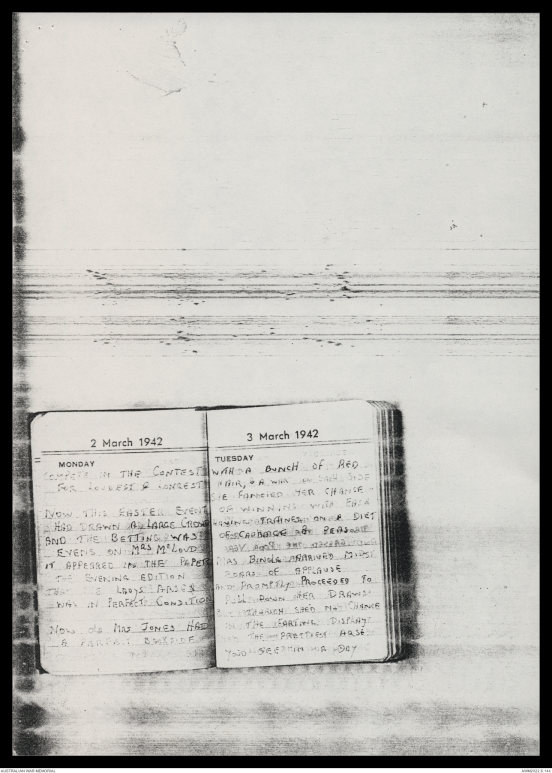 2 March 1942
MONDAY
COMPETE IN THE CONTEST
FOR LOUDEST & LONGEST
NOW THIS EASTER EVENT
HAD DRAWN A LARGE CROWD
AND THE BETTING WAS
EVENS ON MRS McLOUDS
IT APPEARED IN THE PAPER
THE EVENING EDITION
THAT LADYS ARSE
WAS IN PERFECT CONDITION
NOW OLD MRS JONES HAD
A PERFECT BACKSIDE
3 March 1942
TUESDAY
WITH A BUNCH OF RED
HAIR, & A WART ON EACH SIDE
SHE FANCIED HER CHANCE
OF WINNING WITH EASE
HAVING TRAINED ON A DIET
OF CABBAGE & PEAS
MRS BINGLE ARRIVED MIDST
OF APPLAUSE
AND PROMPTLY PROCEEDED TO
PULL DOWN HER DRAWS
THOUGH SHE'D NO CHANCE
IN THE FARTING DISPLAY
THE PRETTIEST ARSE
YOU SEE IN A DAY
AUSTRALIAN WAR MEMORIAL